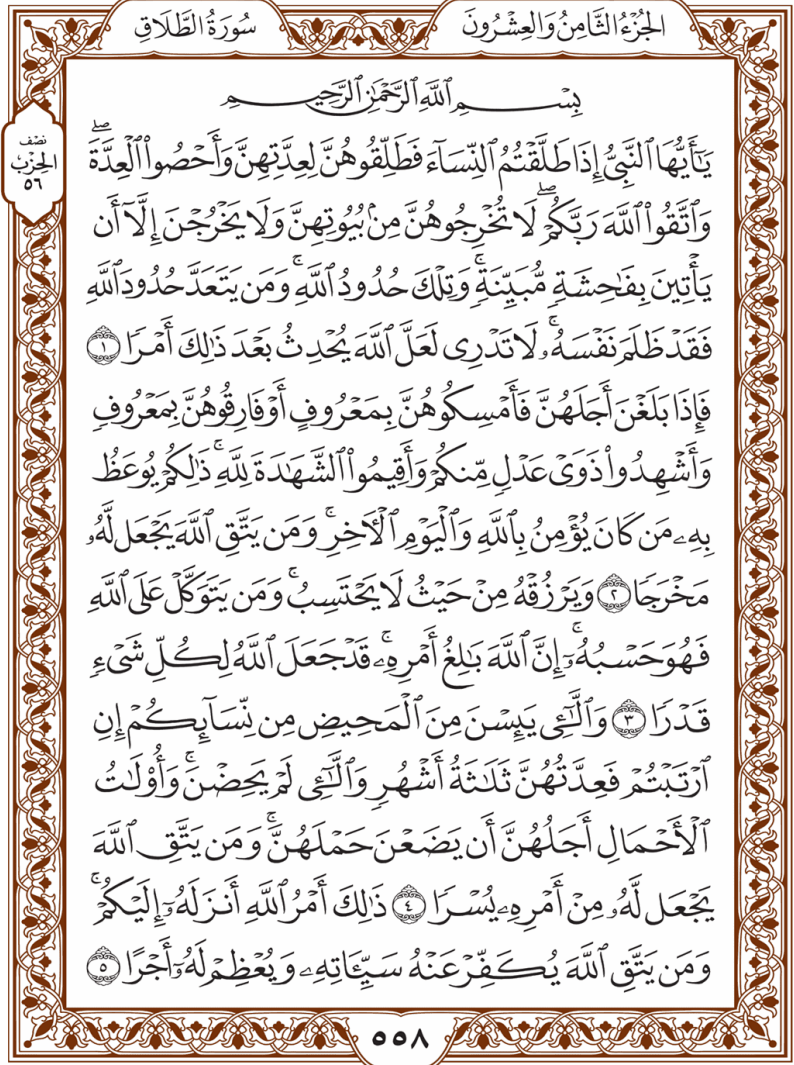 سُورَةُ الطَّلَاقِ
الجُزْءُ الثَّامِنُ وَالعِشْرُونَ
نصف
الحزب
٥٦
بِسْمِ ٱللَّهِ ٱلرَّحْمَٰنِ ٱلرَّحِيمِ
يَٰٓأَيُّهَا ٱلنَّبِىُّ إِذَا طَلَّقْتُمُ ٱلنِّسَآءَ فَطَلِّقُوهُنَّ لِعِدَّتِهِنَّ وَأَحْصُوا۟ ٱلْعِدَّةَ ۖ
وَٱتَّقُوا۟ ٱللَّهَ رَبَّكُمْ ۖ لَا تُخْرِجُوهُنَّ مِنۢ بُيُوتِهِنَّ وَلَا يَخْرُجْنَ إِلَّآ أَن
يَأْتِينَ بِفَٰحِشَةٍ مُّبَيِّنَةٍ ۚ وَتِلْكَ حُدُودُ ٱللَّهِ ۚ وَمَن يَتَعَدَّ حُدُودَ ٱللَّهِ
فَقَدْ ظَلَمَ نَفْسَهُۥ ۚ لَا تَدْرِى لَعَلَّ ٱللَّهَ يُحْدِثُ بَعْدَ ذَٰلِكَ أَمْرًا ١
فَإِذَا بَلَغْنَ أَجَلَهُنَّ فَأَمْسِكُوهُنَّ بِمَعْرُوفٍ أَوْ فَارِقُوهُنَّ بِمَعْرُوفٍ
وَأَشْهِدُوا۟ ذَوَىْ عَدْلٍ مِّنكُمْ وَأَقِيمُوا۟ ٱلشَّهَٰدَةَ لِلَّهِ ۚ ذَٰلِكُمْ يُوعَظُ
بِهِۦ مَن كَانَ يُؤْمِنُ بِٱللَّهِ وَٱلْيَوْمِ ٱلْءَاخِرِ ۚ وَمَن يَتَّقِ ٱللَّهَ يَجْعَل لَّهُۥ
مَخْرَجًا ٢ وَيَرْزُقْهُ مِنْ حَيْثُ لَا يَحْتَسِبُ ۚ وَمَن يَتَوَكَّلْ عَلَى ٱللَّهِ
فَهُوَ حَسْبُهُۥٓ ۚ إِنَّ ٱللَّهَ بَٰلِغُ أَمْرِهِۦ ۚ قَدْ جَعَلَ ٱللَّهُ لِكُلِّ شَىْءٍ
قَدْرًا ٣ وَٱلَّٰٓـِٔى يَئِسْنَ مِنَ ٱلْمَحِيضِ مِن نِّسَآئِكُمْ إِنِ
ٱرْتَبْتُمْ فَعِدَّتُهُنَّ ثَلَٰثَةُ أَشْهُرٍ وَٱلَّٰٓـِٔى لَمْ يَحِضْنَ ۚ وَأُو۟لَٰتُ
ٱلْأَحْمَالِ أَجَلُهُنَّ أَن يَضَعْنَ حَمْلَهُنَّ ۚ وَمَن يَتَّقِ ٱللَّهَ
يَجْعَل لَّهُۥ مِنْ أَمْرِهِۦ يُسْرًا ٤ ذَٰلِكَ أَمْرُ ٱللَّهِ أَنزَلَهُۥٓ إِلَيْكُمْ ۚ
وَمَن يَتَّقِ ٱللَّهَ يُكَفِّرْ عَنْهُ سَيِّـَٔاتِهِۦ وَيُعْظِمْ لَهُۥٓ أَجْرًا ٥
٥٥٨